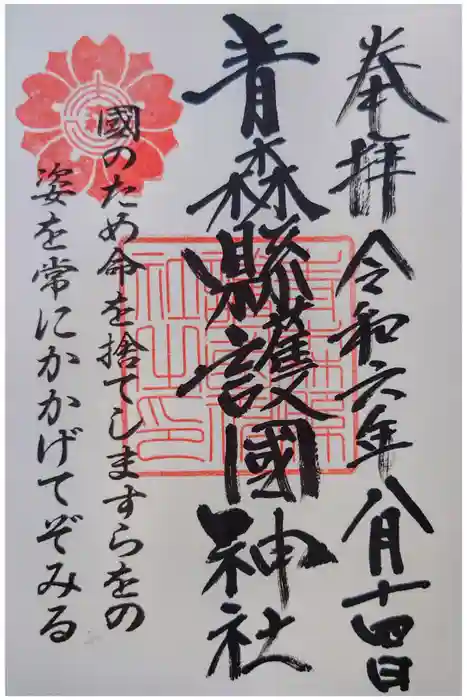 奉拝 令和六年 八月十四日
青森縣護國神社
國のため命を捨てしますらをの
姿を常にかかげてぞみる